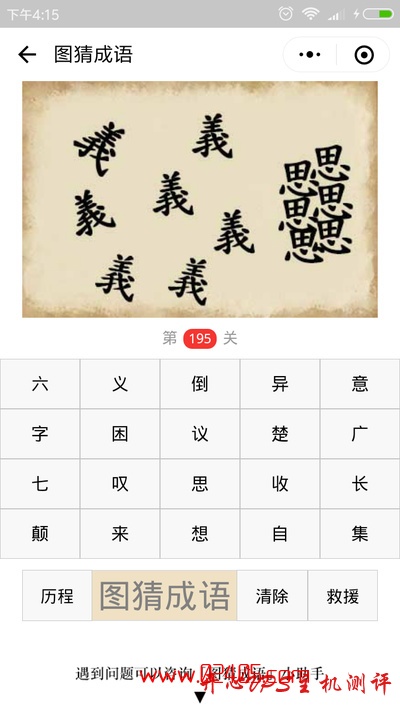 下午4:15
图猜成语
義 義 義 義 義 義 義
思 思 思 思 思 思
第 195 关
六 义 倒 异 意
字 困 议 楚 广
七 叹 思 收 长
颠 来 想 自 集
历程 图猜成语 清除 救援
遇到问题可以咨询
小助手